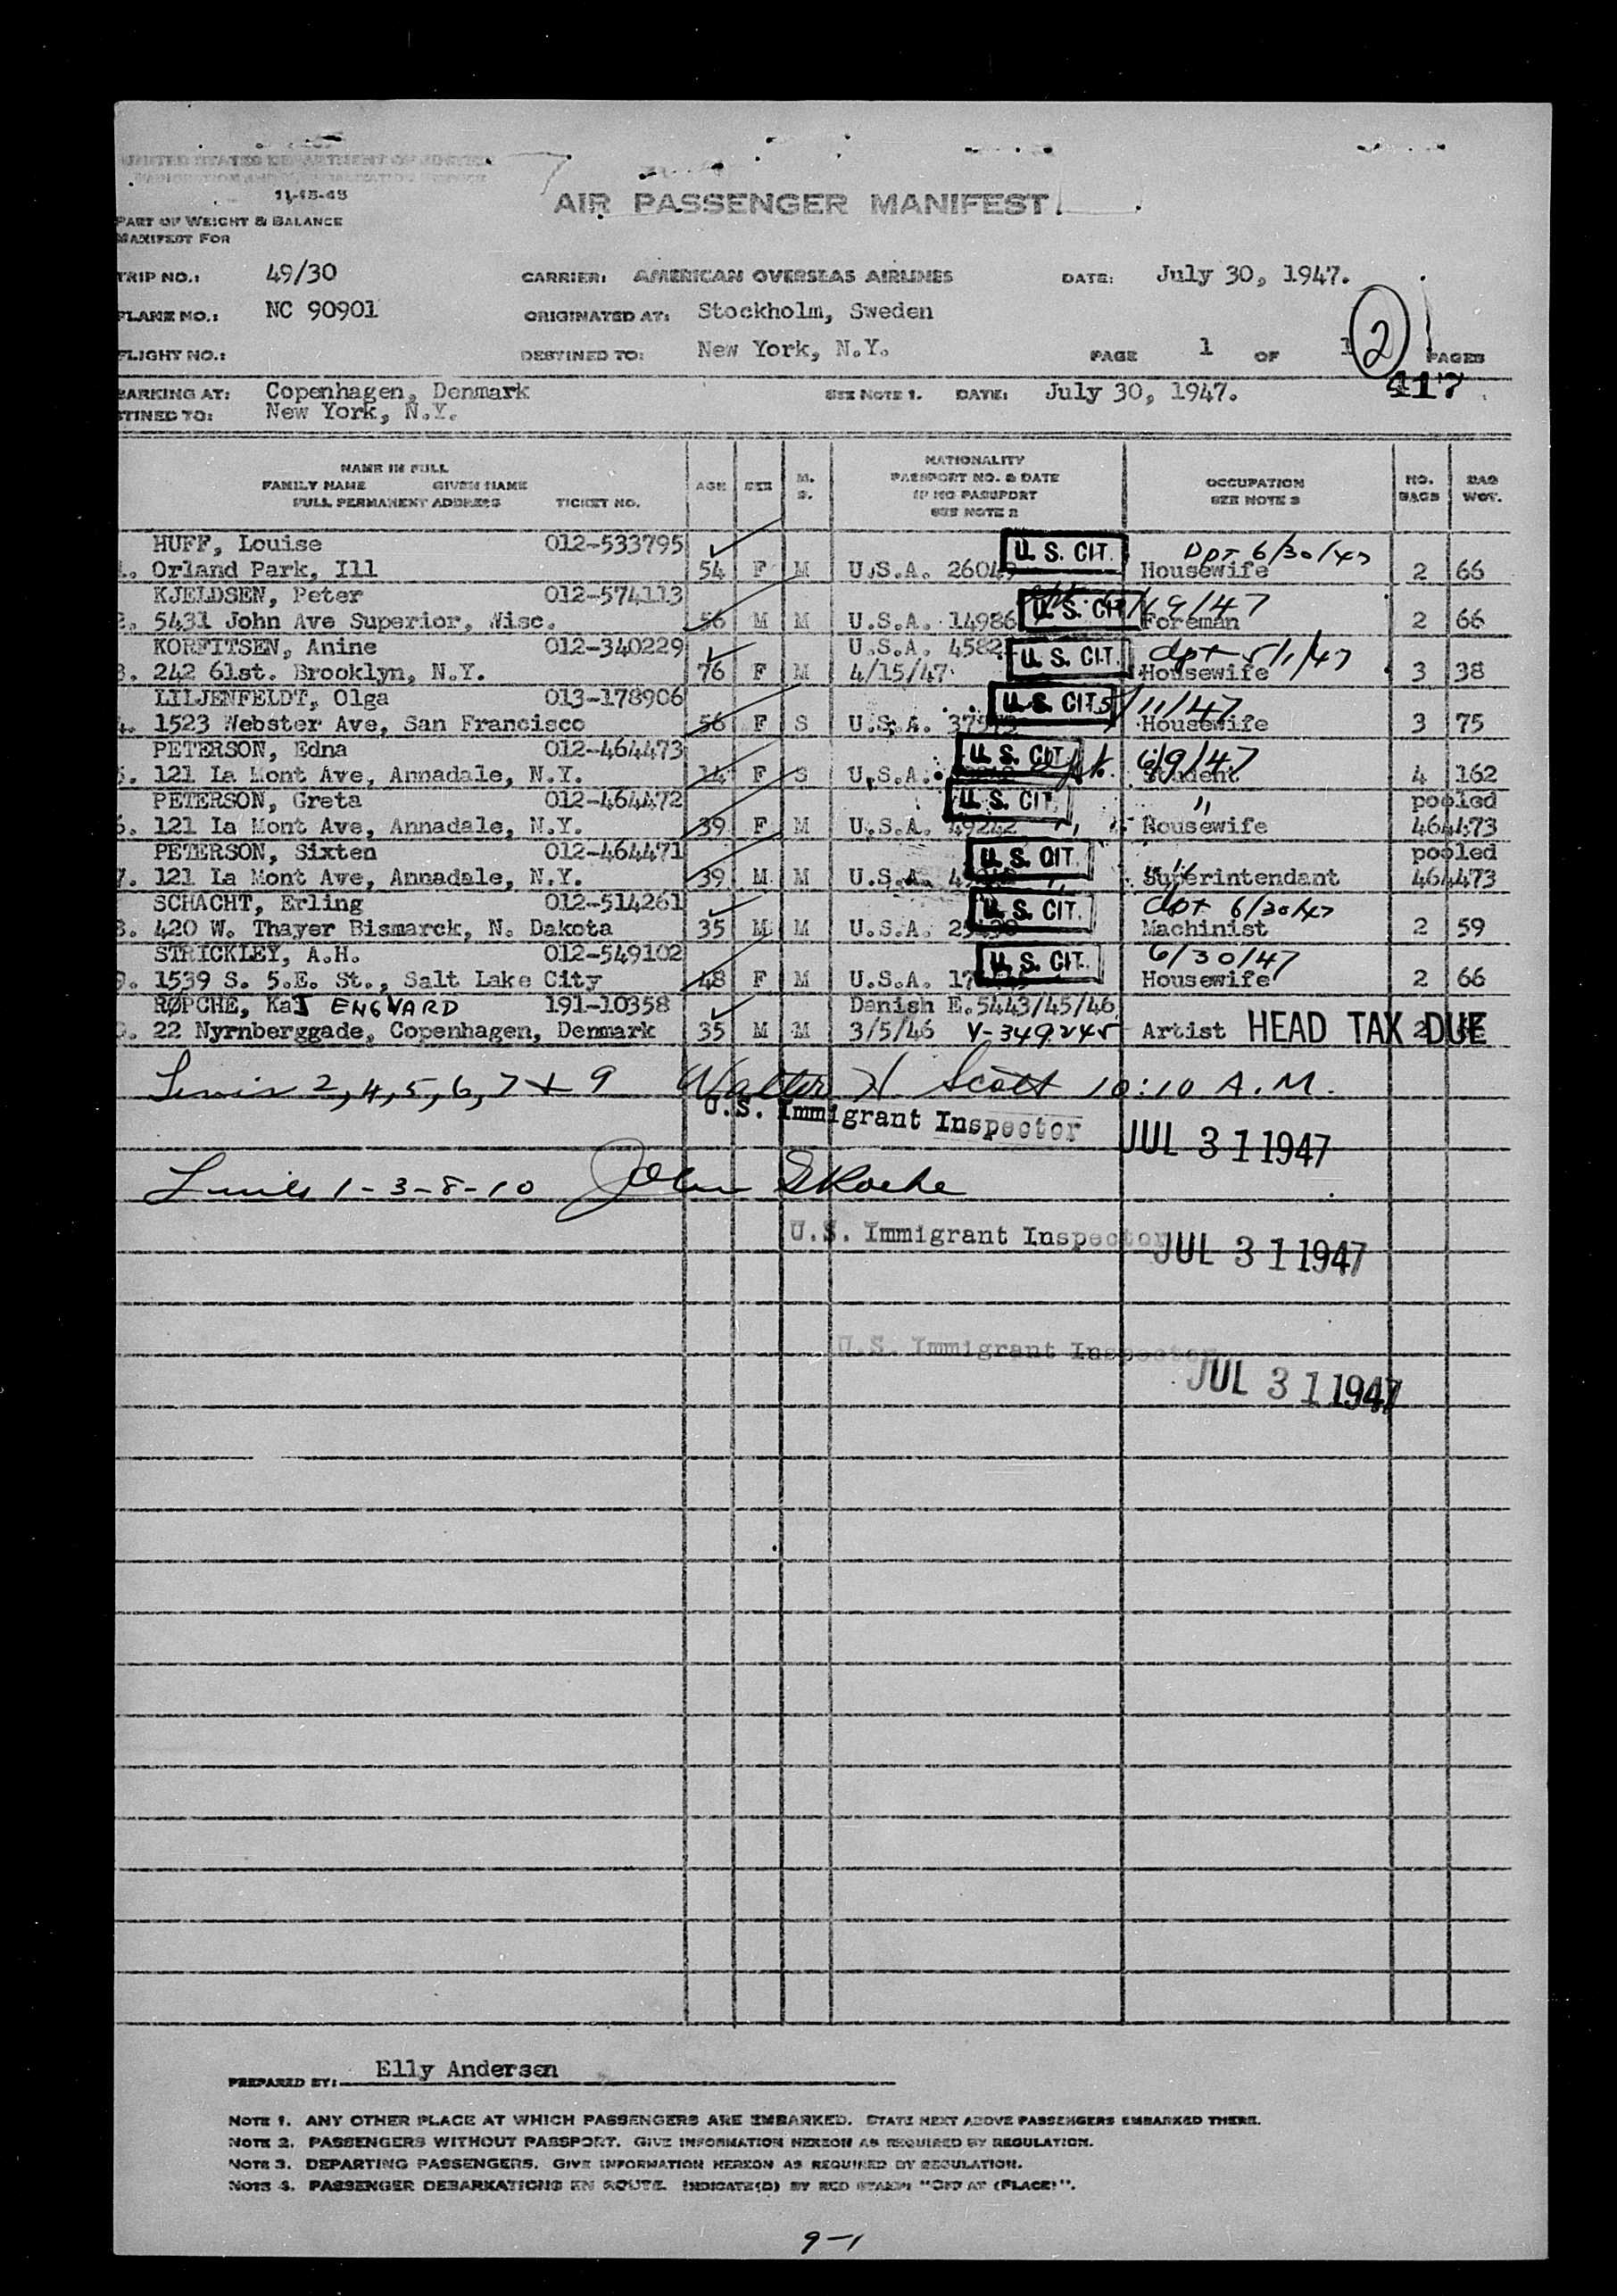 UNITED STATES DEPARTMENT OF JUSTICE
11-15-45
AIR PASSENGER MANIFEST
PART OF WEIGHT & BALANCE
MANIFEST FOR
TRIP NO.: 49/30 CARRIER: AMERICAN OVERSEAS AIRLINES DATE: July 30, 1947.
PLANE NO.: NC 90901 ORIGINATED AT: Stockholm, Sweden
FLIGHT NO.: DESTINED TO: New York, N.Y. PAGE 1 OF 1 2 PAGES
417
BARKING AT: Copenhagen, Denmark SEE NOTE 1. DATE: July 30, 1947.
TINED TO: New York, N.Y.
NAME IN FULL
FAMILY NAME GIVEN NAME
FULL PERMANENT ADDRESS TICKET NO. AGE SEX M. S. NATIONALITY PASSPORT NO. & DATE IF NO PASSPORT SEE NOTE 2 OCCUPATION SEE NOTE 3 NO. BAGS BAG WGT.
HUFF, Louise 012-533795 U. S. CIT. Dpt 6/30/47
1. Orland Park, Ill 54 F M U.S.A. 26049 Housewife 2 66
KJELDSEN, Peter 012-574113 U. S. CIT 6/19/47
2. 5431 John Ave Superior, Wisc. 56 M M U.S.A. 14986 Foreman 2 66
KORFITSEN, Anine 012-340229 U.S.A. 4582 U. S. CIT. dpt 5/1/47
3. 242 61st. Brooklyn, N.Y. 76 F M 4/15/47 Housewife 3 38
LILJENFELDT, Olga 013-178906 U. S. CIT 5/11/47
4. 1523 Webster Ave, San Francisco 56 F S U.S.A. Housewife 3 75
PETERSON, Edna 012-464473 U. S. CIT dpt. 6/9/47
5. 121 La Mont Ave, Annadale, N.Y. 14 F S U.S.A. Student 4 162
PETERSON, Greta 012-464472 U. S. CIT. " pooled
6. 121 La Mont Ave, Annadale, N.Y. 39 F M U.S.A. 49242 Housewife 464473
PETERSON, Sixten 012-464471 U. S. CIT. " pooled
7. 121 La Mont Ave, Annadale, N.Y. 39 M M U.S.A. Superintendant 464473
SCHACHT, Erling 012-514261 U. S. CIT. dpt 6/30/47
8. 420 W. Thayer Bismarck, N. Dakota 35 M M U.S.A. Machinist 2 59
STRICKLEY, A.H. 012-549102 U. S. CIT. 6/30/47
9. 1539 S. 5.E. St., Salt Lake City 48 F M U.S.A. Housewife 2 66
RØPCHE, KaJ ENGVARD 191-10358 Danish E.5443/45/46
22 Nyrnberggade, Copenhagen, Denmark 35 M M 3/5/46 V-349245 Artist HEAD TAX DUE 2
Lines 2,4,5,6,7 + 9 Walter H Scott 10:10 A.M.
U.S. Immigrant Inspector JUL 31 1947
Lines 1-3-8-10 John
U.S. Immigrant Inspector JUL 31 1947
U.S. Immigrant Inspector
JUL 31 1947
PREPARED BY: Elly Andersen
NOTE 1. ANY OTHER PLACE AT WHICH PASSENGERS ARE EMBARKED. STATE NEXT ABOVE PASSENGERS EMBARKED THERE.
NOTE 2. PASSENGERS WITHOUT PASSPORT. GIVE INFORMATION HEREON AS REQUIRED BY REGULATION.
NOTE 3. DEPARTING PASSENGERS. GIVE INFORMATION HEREON AS REQUIRED BY REGULATION.
NOTE 4. PASSENGER DEBARKATIONS EN ROUTE. INDICATE(D) BY RED STAMP "OFF AT (PLACE)".
9-1